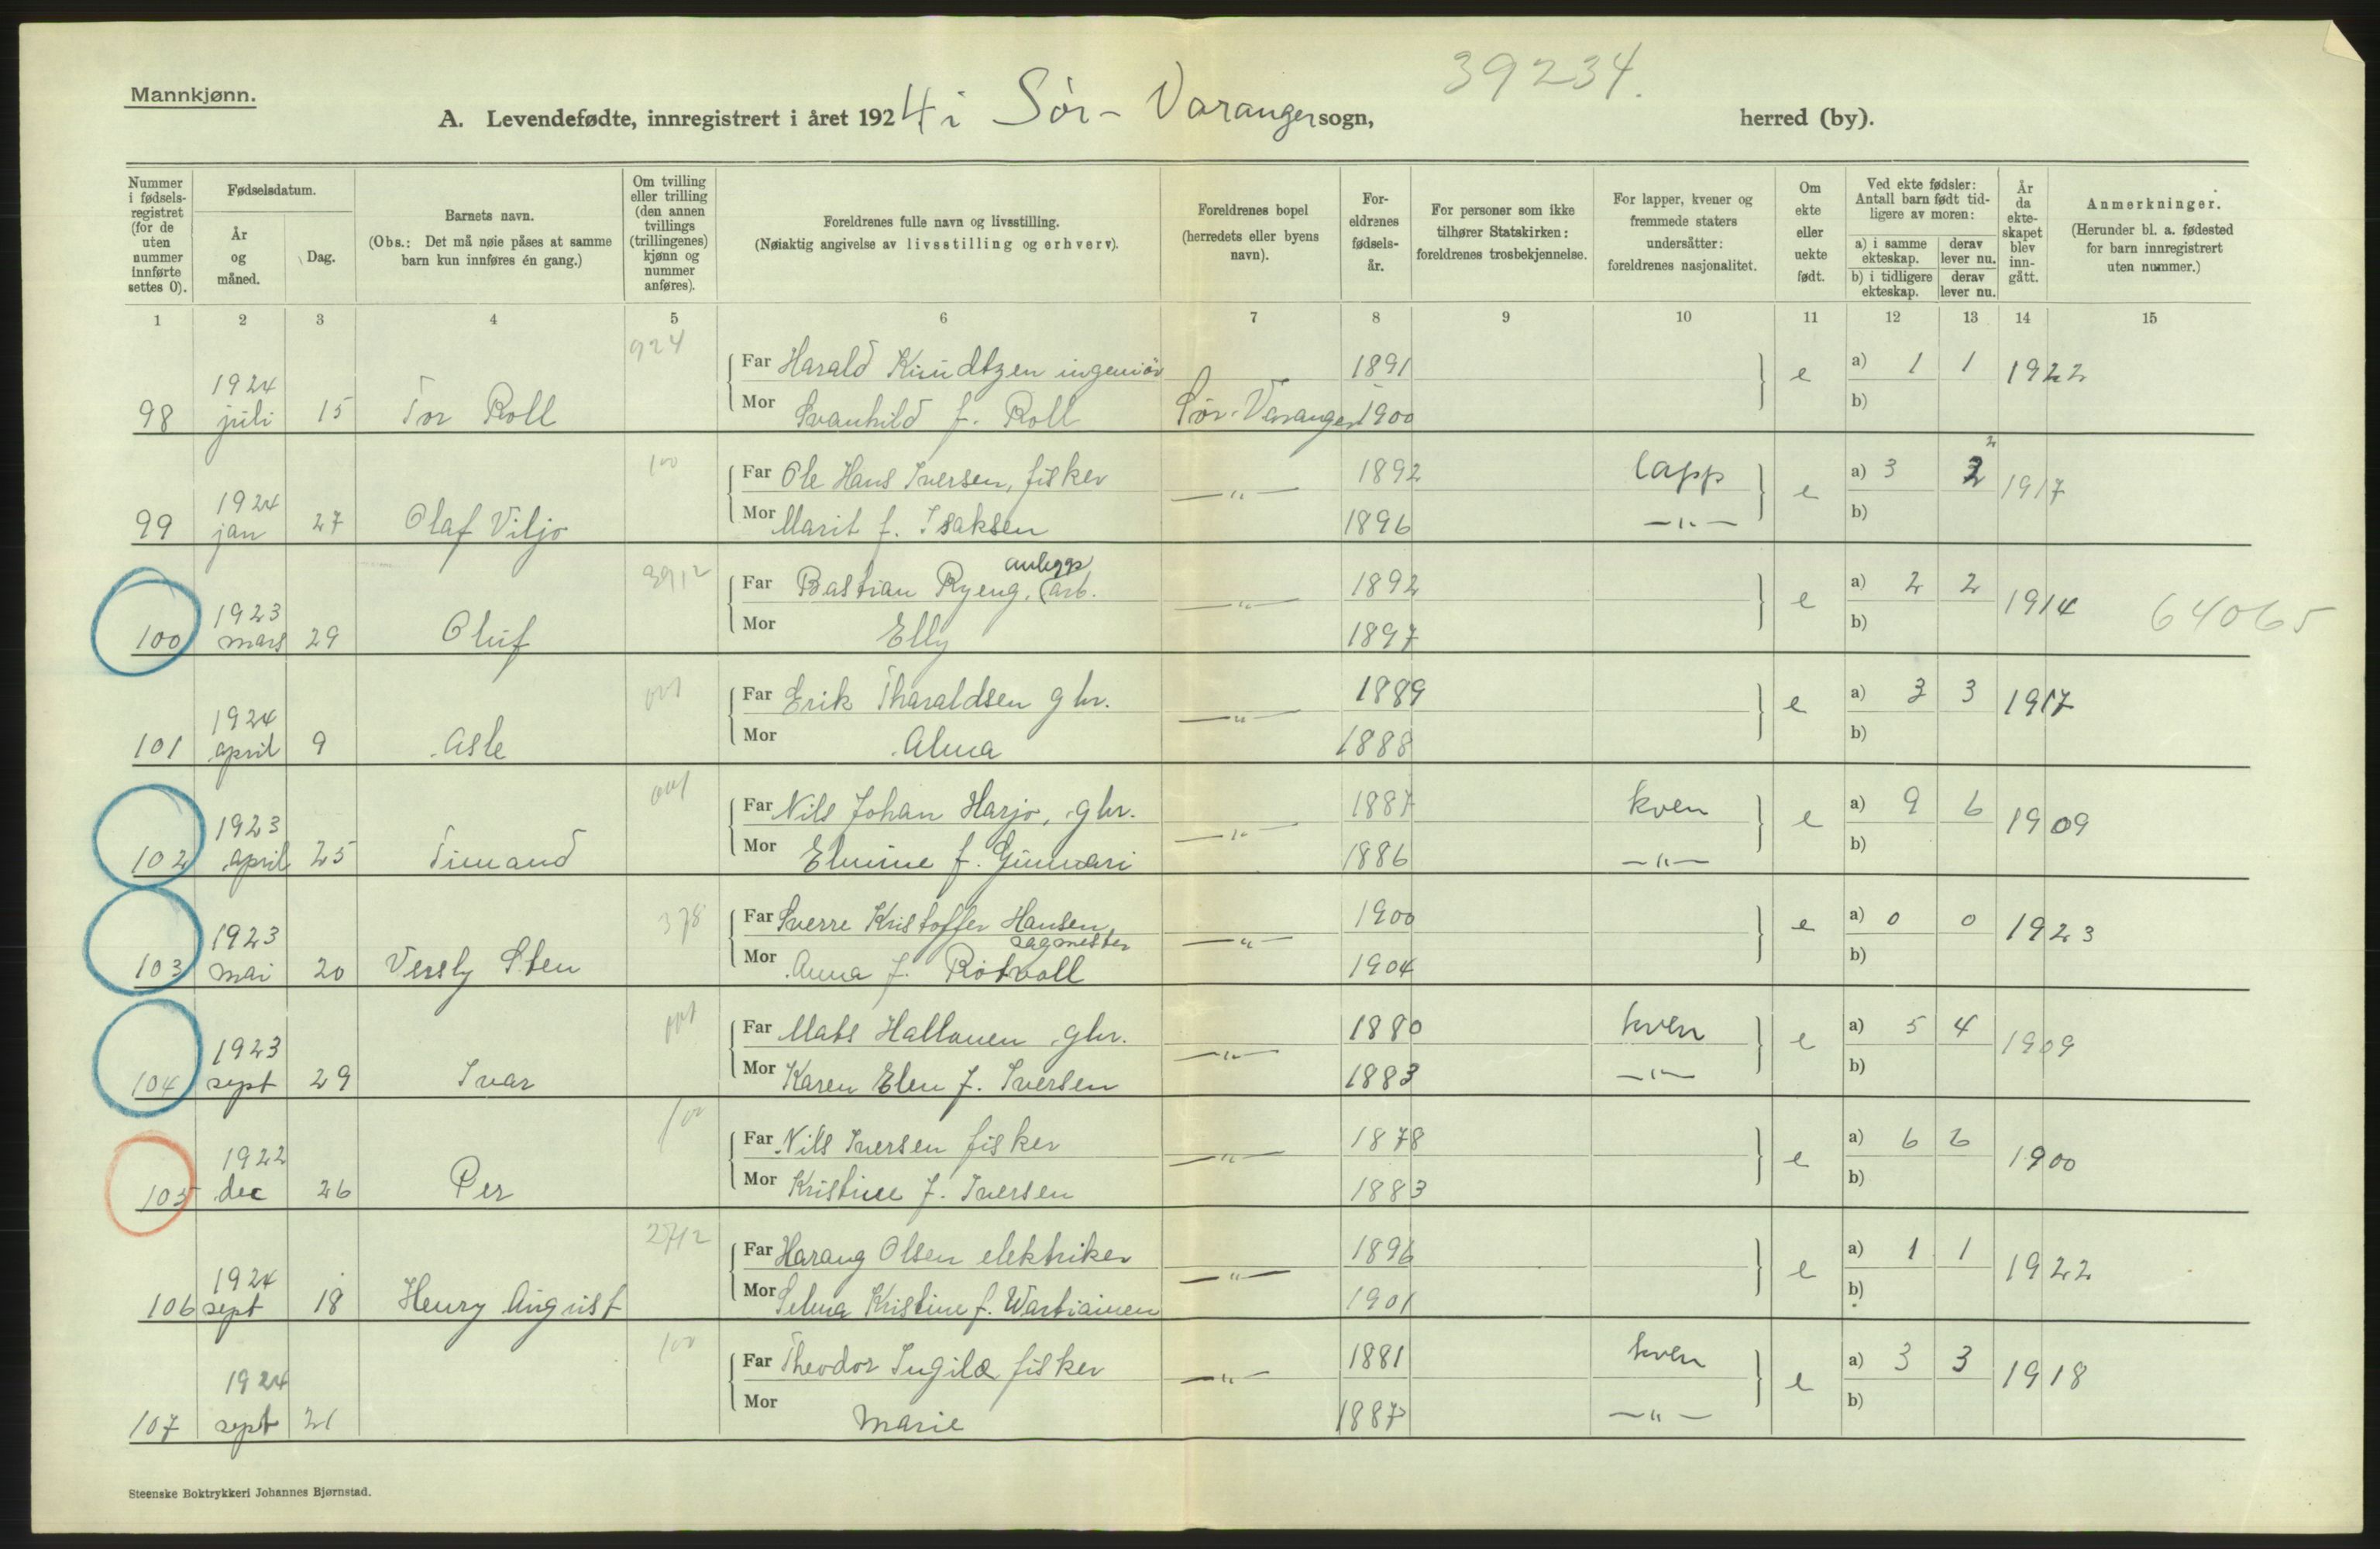 Mannkjønn.
39234.
A. Levendefødte, innregistrert i året 1924 i Sør-Varanger sogn, herred (by).
Nummer i fødselsregistret (for de uten nummer innførte settes 0).
Fødselsdatum.
År og måned.
Dag.
Barnets navn.
(Obs.: Det må nøie påses at samme barn kun innføres én gang.)
Om tvilling eller trilling (den annen tvillings (trillingenes) kjønn og nummer anføres).
Foreldrenes fulle navn og livsstilling.
(Nøiaktig angivelse av livsstilling og erhverv).
Foreldrenes bopel (herredets eller byens navn).
Foreldrenes fødselsår.
For personer som ikke tilhører Statskirken: foreldrenes trosbekjennelse.
For lapper, kvener og fremmede staters undersåtter: foreldrenes nasjonalitet.
Om ekte eller uekte født.
Ved ekte fødsler: Antall barn født tidligere av moren:
a) i samme ekteskap. derav lever nu.
b) i tidligere ekteskap. derav lever nu.
År da ekteskapet blev inngått.
Anmerkninger.
(Herunder bl. a. fødested for barn innregistrert uten nummer.)
1 2 3 4 5 6 7 8 9 10 11 12 13 14 15
924
98 1924 juli 15 Tor Roll
Far Harald Knudtzen ingeniør 1891 e a) 1 1 1922
Mor Svanhild f. Roll Sør-Varanger 1900 b)
100
99 1924 jan 27 Olaf Viljo
Far Ole Hans Iversen, fisker —"— 1892 lapp e a) 3 2 2 1917
Mor Marit f. Isaksen 1896 —"— b)
3912
100 1923 mars 29 Oluf
Far Bastian Ryeng, anlegg arb. —"— 1892 e a) 2 2 1914 64065
Mor Elly 1897 b)
001
101 1924 april 9 Asle
Far Erik Tharaldsen gbr. —"— 1889 e a) 3 3 1917
Mor Alma 1888 b)
001
102 1923 april 25 Timand
Far Nils Johan Harjo, gbr. —"— 1887 kven e a) 9 6 1909
Mor Elmine f. 1886 —"— b)
378
103 1923 mai 20 Versly Sten
Far Sverre Kristoffer Hansen, sagmester —"— 1900 e a) 0 0 1923
Mor Anna f. Rotvoll 1904 b)
001
104 1923 sept 29 Ivar
Far Mats Hallonen gbr. —"— 1880 kven e a) 5 4 1909
Mor Karen Elen f. Iversen 1883 —"— b)
100
105 1922 dec 26 Per
Far Nils Iversen fisker —"— 1878 e a) 6 6 1900
Mor Kristine f. Iversen 1883 b)
2712
106 1924 sept 18 Henry August
Far Harang Olsen elektriker —"— 1896 e a) 1 1 1922
Mor Selma Kristine f. Wartiainen 1901 b)
100
107 1924 sept 21
Far Theodor Ingila fisker —"— 1881 kven e a) 3 3 1918
Mor Marie 1887 —"— b)
Steenske Boktrykkeri Johannes Bjørnstad.